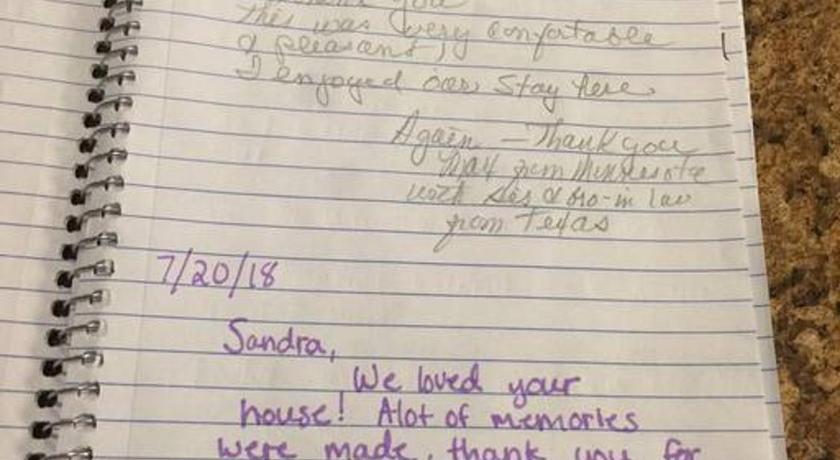 you
this was very comfortable
& pleasant,
I enjoyed our stay here
Again - Thank you
from Minnesota
with sis & bro-in law
from Texas
7/20/18
Sandra,
We loved your
house! Alot of memories
were made, thank you for